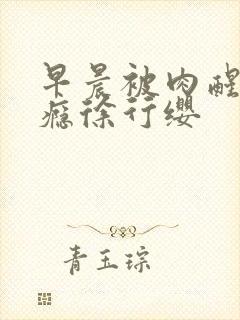 早晨被肉醒
瘾徐行缨
青玉琮